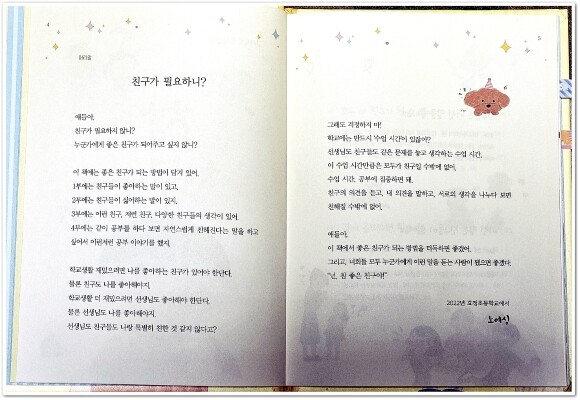 4
머리말
친구가 필요하니?
얘들아,
친구가 필요하지 않니?
누군가에게 좋은 친구가 되어주고 싶지 않니?
이 책에는 좋은 친구가 되는 방법이 담겨 있어.
1부에는 친구들이 좋아하는 말이 있고,
2부에는 친구들이 싫어하는 말이 있지.
3부에는 이런 친구, 저런 친구, 다양한 친구들의 생각이 있어.
4부에는 같이 공부를 하다 보면 자연스럽게 친해진다는 말을 하고
싶어서 이런저런 공부 이야기를 했지.
학교생활 재밌으려면 나를 좋아하는 친구가 있어야 한단다.
물론 친구도 나를 좋아해야지.
학교생활 더 재밌으려면 선생님도 좋아해야 한단다.
물론 선생님도 나를 좋아해야지.
선생님도 친구들도 나랑 특별히 친한 것 같지 않다고?
5
그래도 걱정하지 마!
학교에는 반드시 '수업 시간'이 있잖아?
선생님도 친구들도 같은 문제를 놓고 생각하는 수업 시간,
이 수업 시간만큼은 모두가 친구일 수밖에 없어.
수업 시간, 공부에 집중하면 돼.
친구의 의견을 듣고, 내 의견을 말하고, 서로의 생각을 나누다 보면
친해질 수밖에 없어.
얘들아,
이 책에서 좋은 친구가 되는 방법을 터득하면 좋겠어.
그리고, 너희들 모두 누군가에게 이런 말을 듣는 사람이 됐으면 좋겠다.
"넌, 참 좋은 친구야!"
2022년 효정초등학교에서
노여심